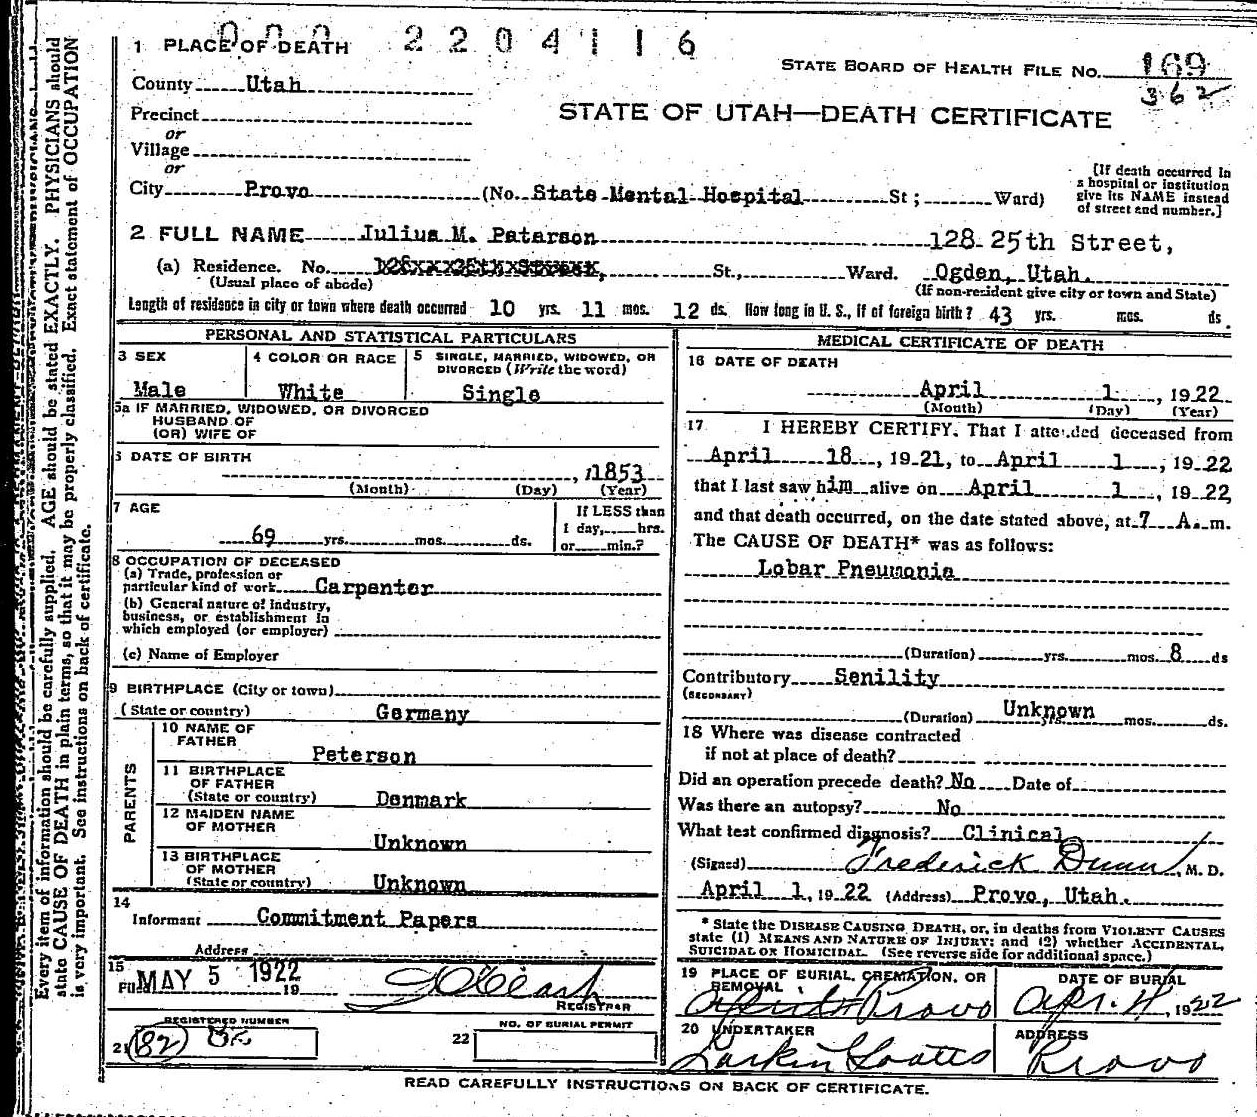 000 2204116
1 PLACE OF DEATH
STATE BOARD OF HEALTH FILE No. 169
362
County Utah
STATE OF UTAH—DEATH CERTIFICATE
Precinct
or
Village
or
City Provo (No. State Mental Hospital St; Ward)
[If death occurred in
a hospital or institution
give its NAME instead
of street and number.]
2 FULL NAME Julius M. Peterson 128 25th Street,
(a) Residence. No. St., Ward. Ogden, Utah.
(Usual place of abode) (If non-resident give city or town and State)
Length of residence in city or town where death occurred 10 yrs. 11 mos. 12 ds. How long in U. S., if of foreign birth? 43 yrs. mos. ds.
PERSONAL AND STATISTICAL PARTICULARS
3 SEX
Male
4 COLOR OR RACE
White
5 SINGLE, MARRIED, WIDOWED, OR
DIVORCED (Write the word)
Single
5a IF MARRIED, WIDOWED, OR DIVORCED
HUSBAND OF
(OR) WIFE OF
6 DATE OF BIRTH
, 1853
(Month) (Day) (Year)
7 AGE
69 yrs. mos. ds.
If LESS than
1 day, hrs.
or min.?
8 OCCUPATION OF DECEASED
(a) Trade, profession or
particular kind of work Carpenter
(b) General nature of Industry,
business, or establishment in
which employed (or employer)
(c) Name of Employer
9 BIRTHPLACE (City or town)
(State or country) Germany
PARENTS
10 NAME OF
FATHER
Peterson
11 BIRTHPLACE
OF FATHER
(State or country) Denmark
12 MAIDEN NAME
OF MOTHER
Unknown
13 BIRTHPLACE
OF MOTHER
(State or country) Unknown
14
Informant Commitment Papers
Address
15
MAY 5 1922
19
REGISTRAR
REGISTERED NUMBER
21 (82) 82
NO. OF BURIAL PERMIT
22
MEDICAL CERTIFICATE OF DEATH
16 DATE OF DEATH
April 1, 1922
(Month) (Day) (Year)
17 I HEREBY CERTIFY, That I attended deceased from
April 18, 1921, to April 1, 1922
that I last saw him alive on April 1, 1922
and that death occurred, on the date stated above, at 7 A. m.
The CAUSE OF DEATH* was as follows:
Lobar Pneumonia
(Duration) yrs. mos. 8 ds
Contributory Senility
(SECONDARY)
(Duration) Unknown yrs. mos. ds.
18 Where was disease contracted
if not at place of death?
Did an operation precede death? No Date of
Was there an autopsy? No
What test confirmed diagnosis? Clinical
(Signed) Frederick Dunn, M. D.
April 1, 1922 (Address) Provo, Utah.
* State the DISEASE CAUSING DEATH, or, in deaths from VIOLENT CAUSES
state (1) MEANS AND NATURE OF INJURY; and (2) whether ACCIDENTAL,
SUICIDAL OR HOMICIDAL. (See reverse side for additional space.)
19 PLACE OF BURIAL, CREMATION, OR
REMOVAL
Provo
DATE OF BURIAL
Apr. 4, 1922
20 UNDERTAKER
Larkin
ADDRESS
Provo
READ CAREFULLY INSTRUCTIONS ON BACK OF CERTIFICATE.
Every item of information should be carefully supplied. AGE should be stated EXACTLY. PHYSICIANS should
state CAUSE OF DEATH in plain terms, so that it may be properly classified. Exact statement of OCCUPATION
is very important. See instructions on back of certificate.